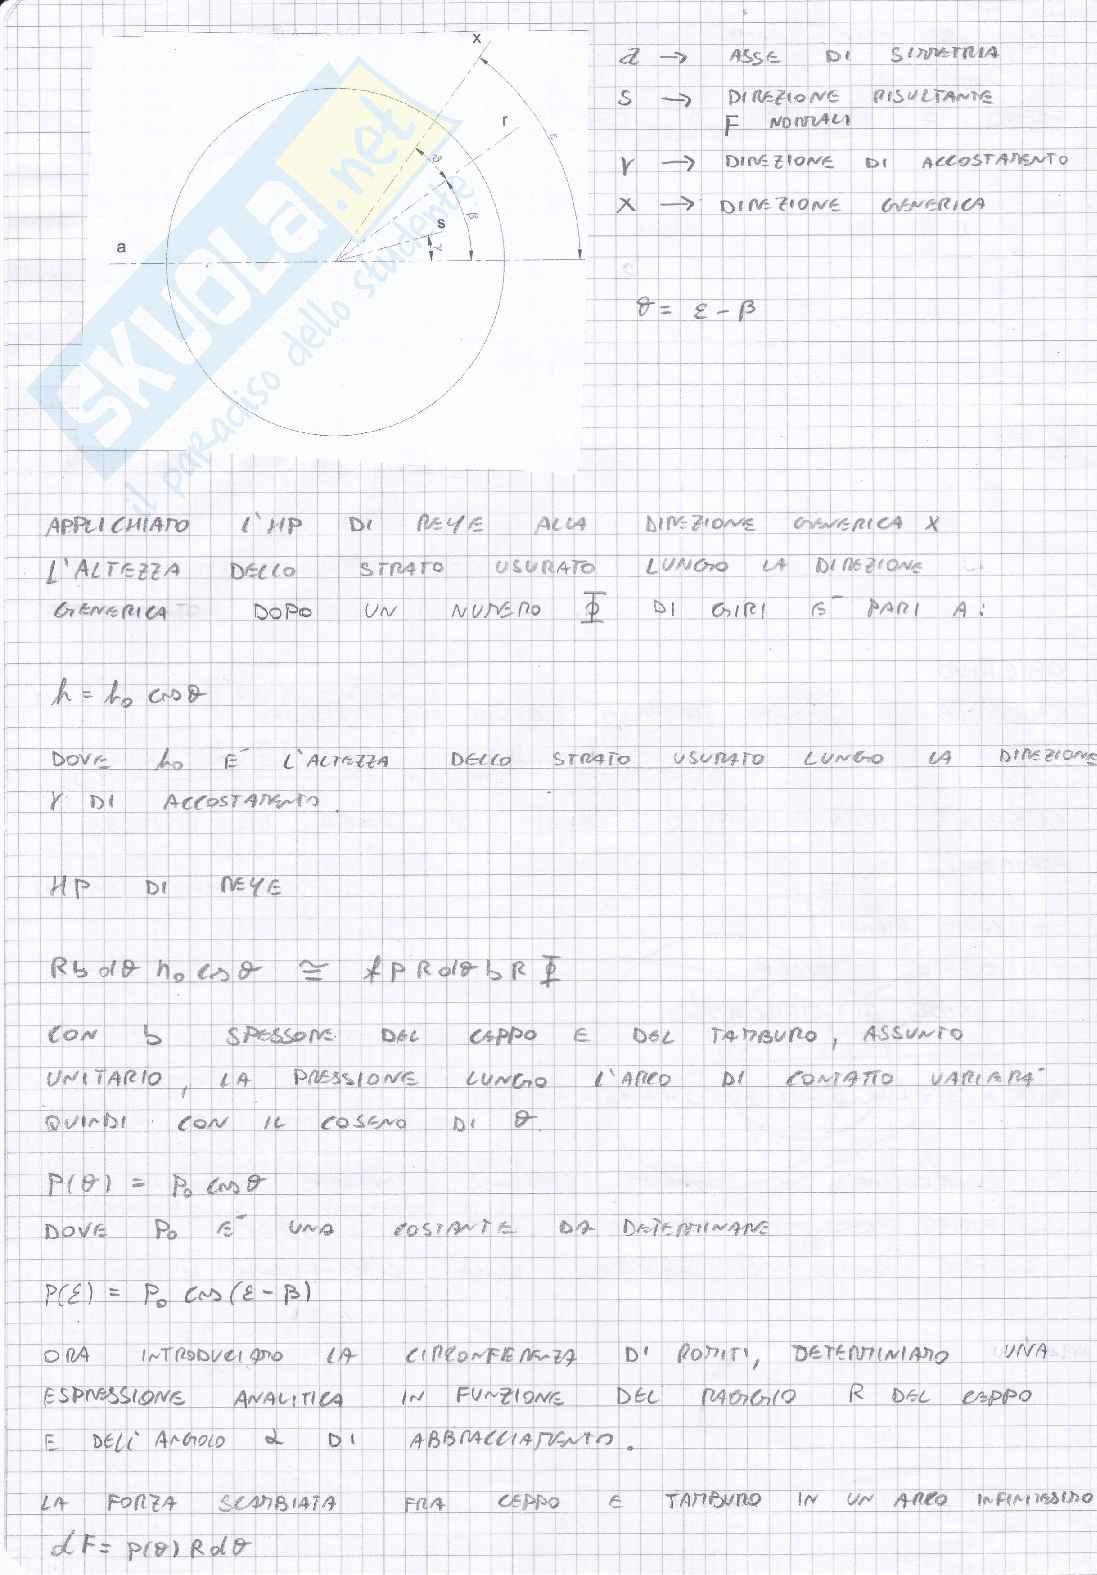 a → ASSE DI SIMMETRIA
s → DIREZIONE RISULTANTE
F NORMALI
r → DIREZIONE DI ACCOSTAMENTO
x → DIREZIONE GENERICA
x
r
s
a
ε
ϑ
β
γ
SKUOLA.net
il paradiso dello studente
ϑ = ε - β
APPLICHIAMO L'HP DI REYE ALLA DIREZIONE GENERICA X
L'ALTEZZA DELLO STRATO USURATO LUNGO LA DIREZIONE
GENERICA DOPO UN NUMERO Φ DI GIRI E' PARI A:
h = h₀ cosϑ
DOVE h₀ E' L'ALTEZZA DELLO STRATO USURATO LUNGO LA DIREZIONE
r DI ACCOSTAMENTO.
HP DI REYE
R b dϑ h₀ cosϑ ≅ f p R dϑ b R Φ
CON b SPESSORE DEL CEPPO E DEL TAMBURO, ASSUNTO
UNITARIO, LA PRESSIONE LUNGO L'ARCO DI CONTATTO VARIERA'
QUINDI CON IL COSENO DI ϑ.
P(ϑ) = P₀ cosϑ
DOVE P₀ E' UNA COSTANTE DA DETERMINARE
P(ε) = P₀ cos(ε - β)
ORA INTRODUCIAMO LA CIRCONFERENZA DI ROMITI, DETERMINIAMO UNA
ESPRESSIONE ANALITICA IN FUNZIONE DEL RAGGIO R DEL CEPPO
E DELL'ANGOLO α DI ABBRACCIAMENTO.
LA FORZA SCAMBIATA FRA CEPPO E TAMBURO IN UN ARCO INFINITESIMO
dF = p(ϑ) R dϑ